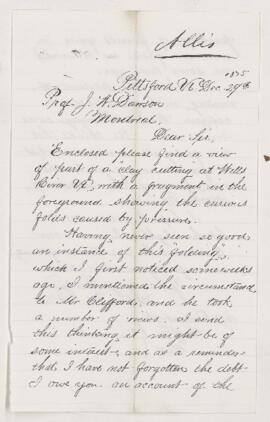 Allis
1875
Pittsford Vt Dec. 29th
Prof. J. W. Dawson
Montreal.
Dear Sir,
Enclosed please find a view
of part of a clay cutting at Wells
River Vt, with a fragment in the
foreground showing the curious
folds caused by pressure.
Having never seen so good
an instance of this "folding",
which I first noticed some weeks
ago, I mentioned the circumstance
to Mr Clifford, and he took
a number of views. I send
this thinking it might be of
some interest, and as a reminder
that I have not forgotten the debt
I owe you on account of the